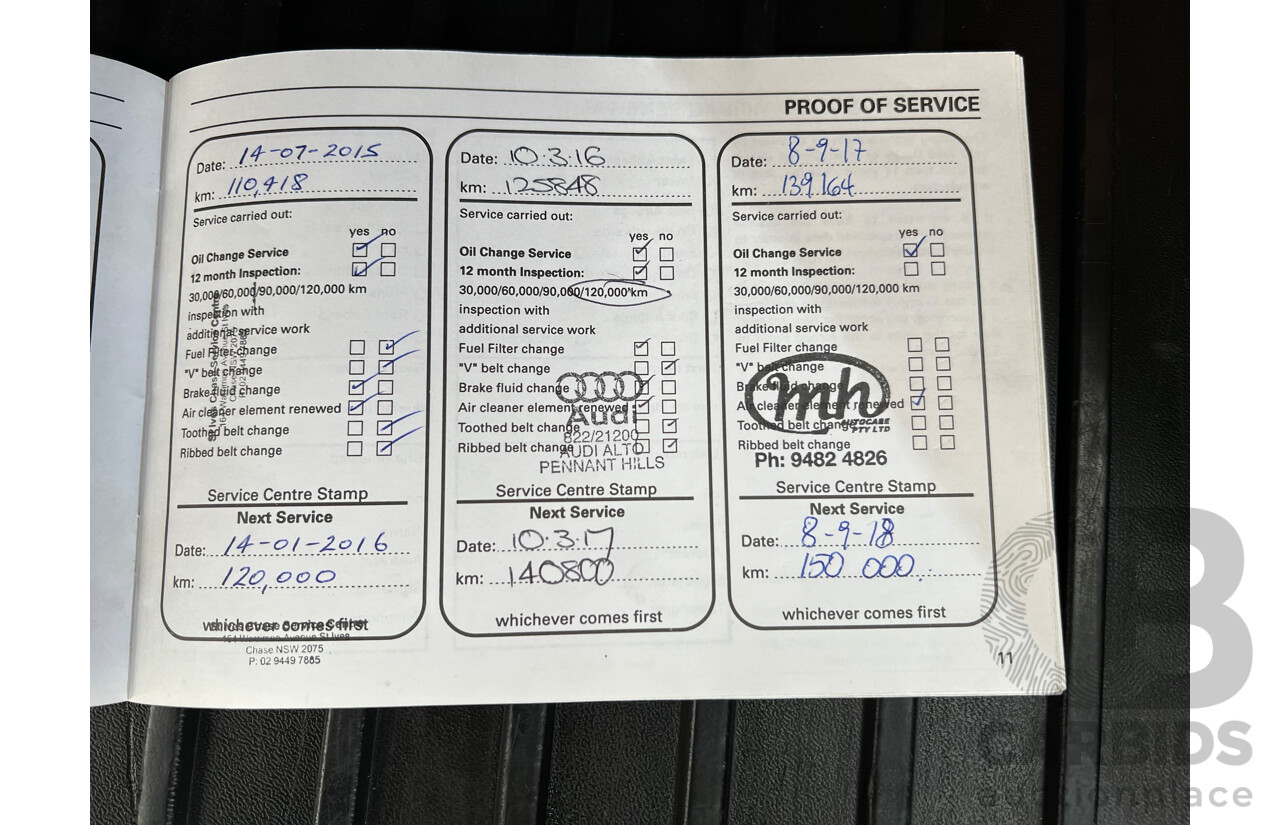 PROOF OF SERVICE
Date: 14-07-2015
km: 110,418
Service carried out:
yes no
Oil Change Service
12 month Inspection:
30,000/60,000/90,000/120,000 km
inspection with
additional service work
Fuel Filter change
"V" belt change
Brake fluid change
Air cleaner element renewed
Toothed belt change
Ribbed belt change
Service Centre Stamp
Next Service
Date: 14-01-2016
km: 120,000
whichever comes first
Chase NSW 2075
P: 02 9449 7885
Date: 10.3.16
km: 125848
Service carried out:
yes no
Oil Change Service
12 month Inspection:
30,000/60,000/90,000/120,000 km
inspection with
additional service work
Fuel Filter change
"V" belt change
Brake fluid change
Air cleaner element renewed
Toothed belt change
Ribbed belt change
Audi
822/21200
AUDI ALTO
PENNANT HILLS
Service Centre Stamp
Next Service
Date: 10.3.17
km: 140800
whichever comes first
Date: 8-9-17
km: 139164
Service carried out:
yes no
Oil Change Service
12 month Inspection:
30,000/60,000/90,000/120,000 km
inspection with
additional service work
Fuel Filter change
"V" belt change
Brake fluid change
Air cleaner element renewed
Toothed belt change
Ribbed belt change
mh
AUTOCARE
PTY LTD
Ph: 9482 4826
Service Centre Stamp
Next Service
Date: 8-9-18
km: 150 000
whichever comes first
11
CARBIDS
auctionplace